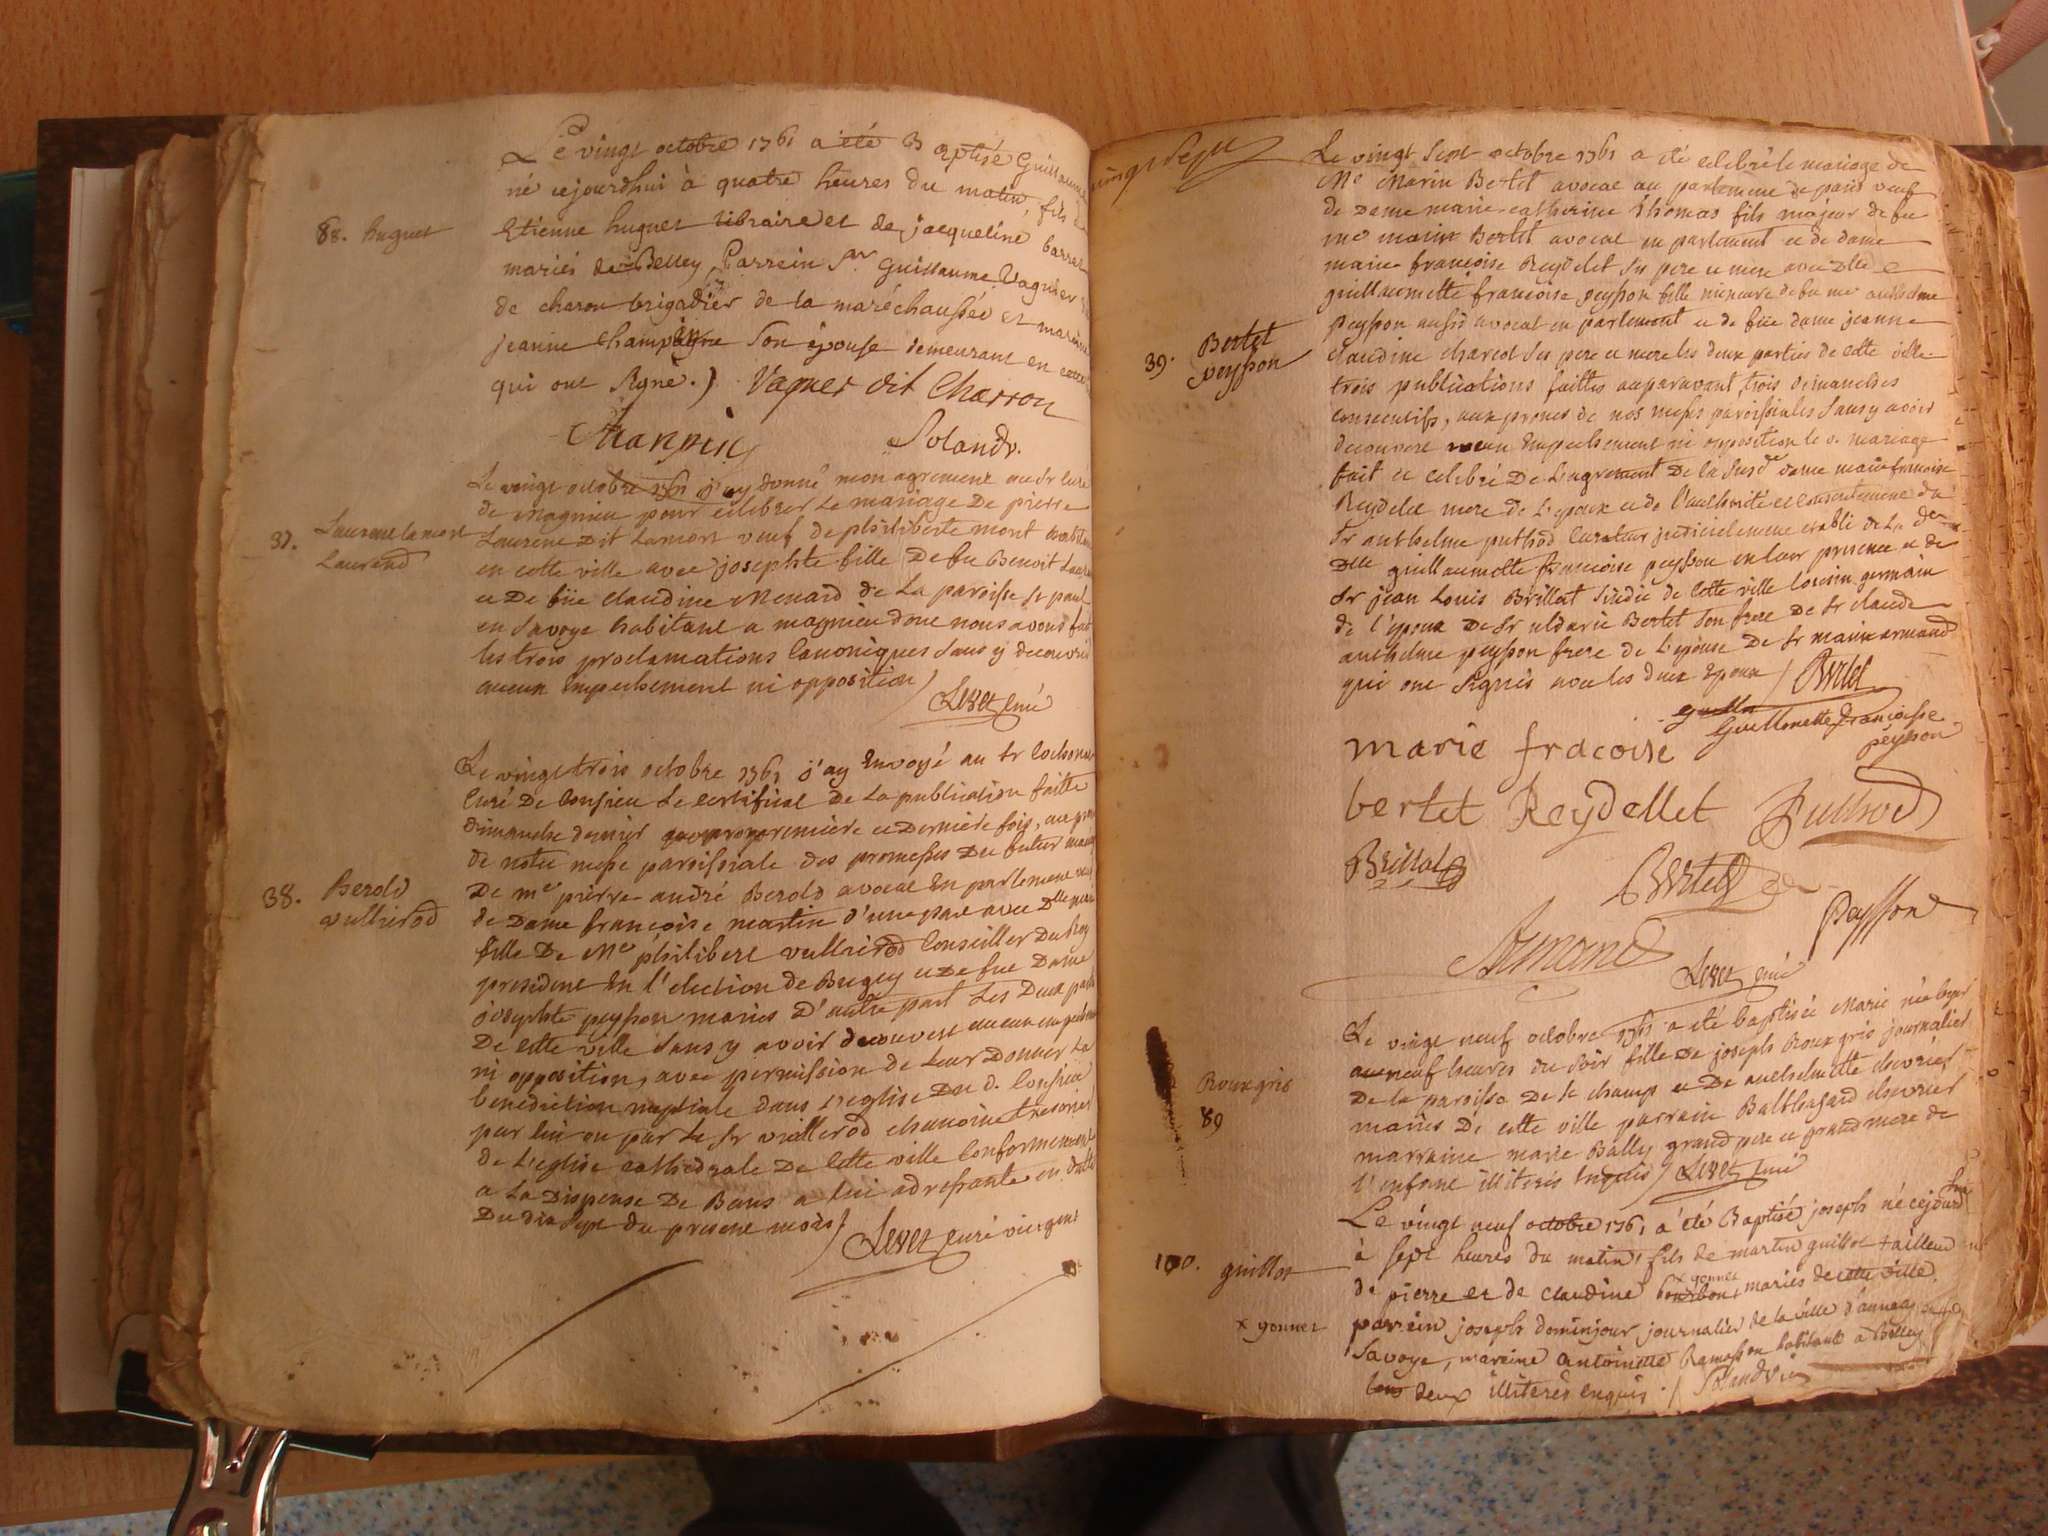 Le vingt octobre 1761 a été Baptisé Guillaume
né cejourdhui à quatre heures du matin, fils de
88. huguet
Etienne huguet libraire et de jacqueline barret
mariés de Belley, Parrein Sr. Guillaume Vagnier
de charon brigadier de la maréchaussée et mareine
jeanne champagne son épouse demeurant en cette
qui ont signé.) Vagner dit Charron
Solandr.
Le vingt octobre 1761 j'ay donné mon agrement au Sr curé
de magnieu pour célébrer le mariage de pierre
37. Laurent lamort
Laurand
Laurent Dit Lamort veuf de philiberte mont habitant
en cette ville avec josephte fille De fu Benoit
et De füe claudine Menard de La paroisse St paul
en Savoye habitant a magnieu dont nous avons fait
les trois proclamations Canoniques Sans y decouvrir
aucun Empechement ni opposition / Levet curé
Le vingt trois octobre 1761 j'ay Envoyé au Sr
Curé De Consieu Le certificat De La publication faitte
dimanche dernier premiere et Derniere fois, au prone
de notre messe paroissiale des promesses Du futur mariage
38. Berold
vullierod
De me pierre andré Berold avocat En parlement veuf
de Dame françoise martin d'une part avec Dlle marie
fille De Me philibert vullierod Conseiller Du Roy
president En l'election de Bugey et De fue Dame
josephte peysson mariés D'autre part Les Deux parties
De cette ville Sans y avoir decouvert aucun empechement
ni opposition, avec permission de Leur Donner La
benediction nuptiale dans L'eglise Du d. Consieu
par lui ou par Le Sr vullierod chanoine tresorier
de L'eglise cathedrale De Cette ville Conformement
a La Dispense De Bans a lui adressante en datte
Du dix Sept du present mois / Levet curé vicegent
vingt Sept
Le vingt Sept octobre 1761 a été celebré le mariage de
Me Marin Bertet avocat au parlement de paris veuf
de Dame marie catherine Thomas fils majeur de fu
me marin Bertet avocat en parlement et de dame
marie françoise Reydelet Ses pere et mere avec Dlle
guillaumette françoise peysson fille mineure de fu me anthelme
39. Bertet
peysson
peysson aussi avocat en parlement et de füe dame jeanne
claudine charcot Ses pere et mere les deux parties de cette ville
trois publications faittes auparavant, trois dimanches
consecutifs, aux prones de nos messes paroissiales Sans y avoir
decouvert aucun Empechement ni opposition le d. mariage
fait et celebré De L'agrement De la Susde Dame marie francoise
Reydelet mere De L'epoux et de l'authorité et consentement du
Sr anthelme puthod Curateur judicielement etabli de La de
Dlle guillaumette françoise peysson en leur presence et de
Sr jean Louis Brillat Sindic de Cette ville Cousin germain
de l'epoux De Sr uldaric Bertet Son frere De Sr claude
anthelme peysson frere de L'epouse De Sr marin armand
qui ont Signés avec les deux Epoux / Bertet
guilla
Guillemette francoisse
peysson
marie fracoise
bertet Reydellet Puthod
Brillat Bertet
Peysson
Armand
Levet curé
Le vingt neuf octobre 1761 a été baptisée Marie née hyer
Roux gris
89
au neuf heures du Soir fille De joseph Roux gris journalier
De la paroisse De St champ et De anthelmette chevrier
mariés De cette ville parrain Balthasard chevrier
marraine marie Bally grand pere et grand mere de
l'enfant illiterés Enquis / Levet curé
Le vingt neuf octobre 1761 a été Baptisé joseph né cejourdhui
100. guillot
à sept heures du matin, fils de martin guillot tailleur
x gonnet
de pierre et de claudine bourbon, mariés de cette ville.
x gonnet
parrein joseph dominjour journalier de la ville d'
Savoye, mareine antoinette Ramasson habitants à Belley
tous deux illiterés enquis. / Solandr